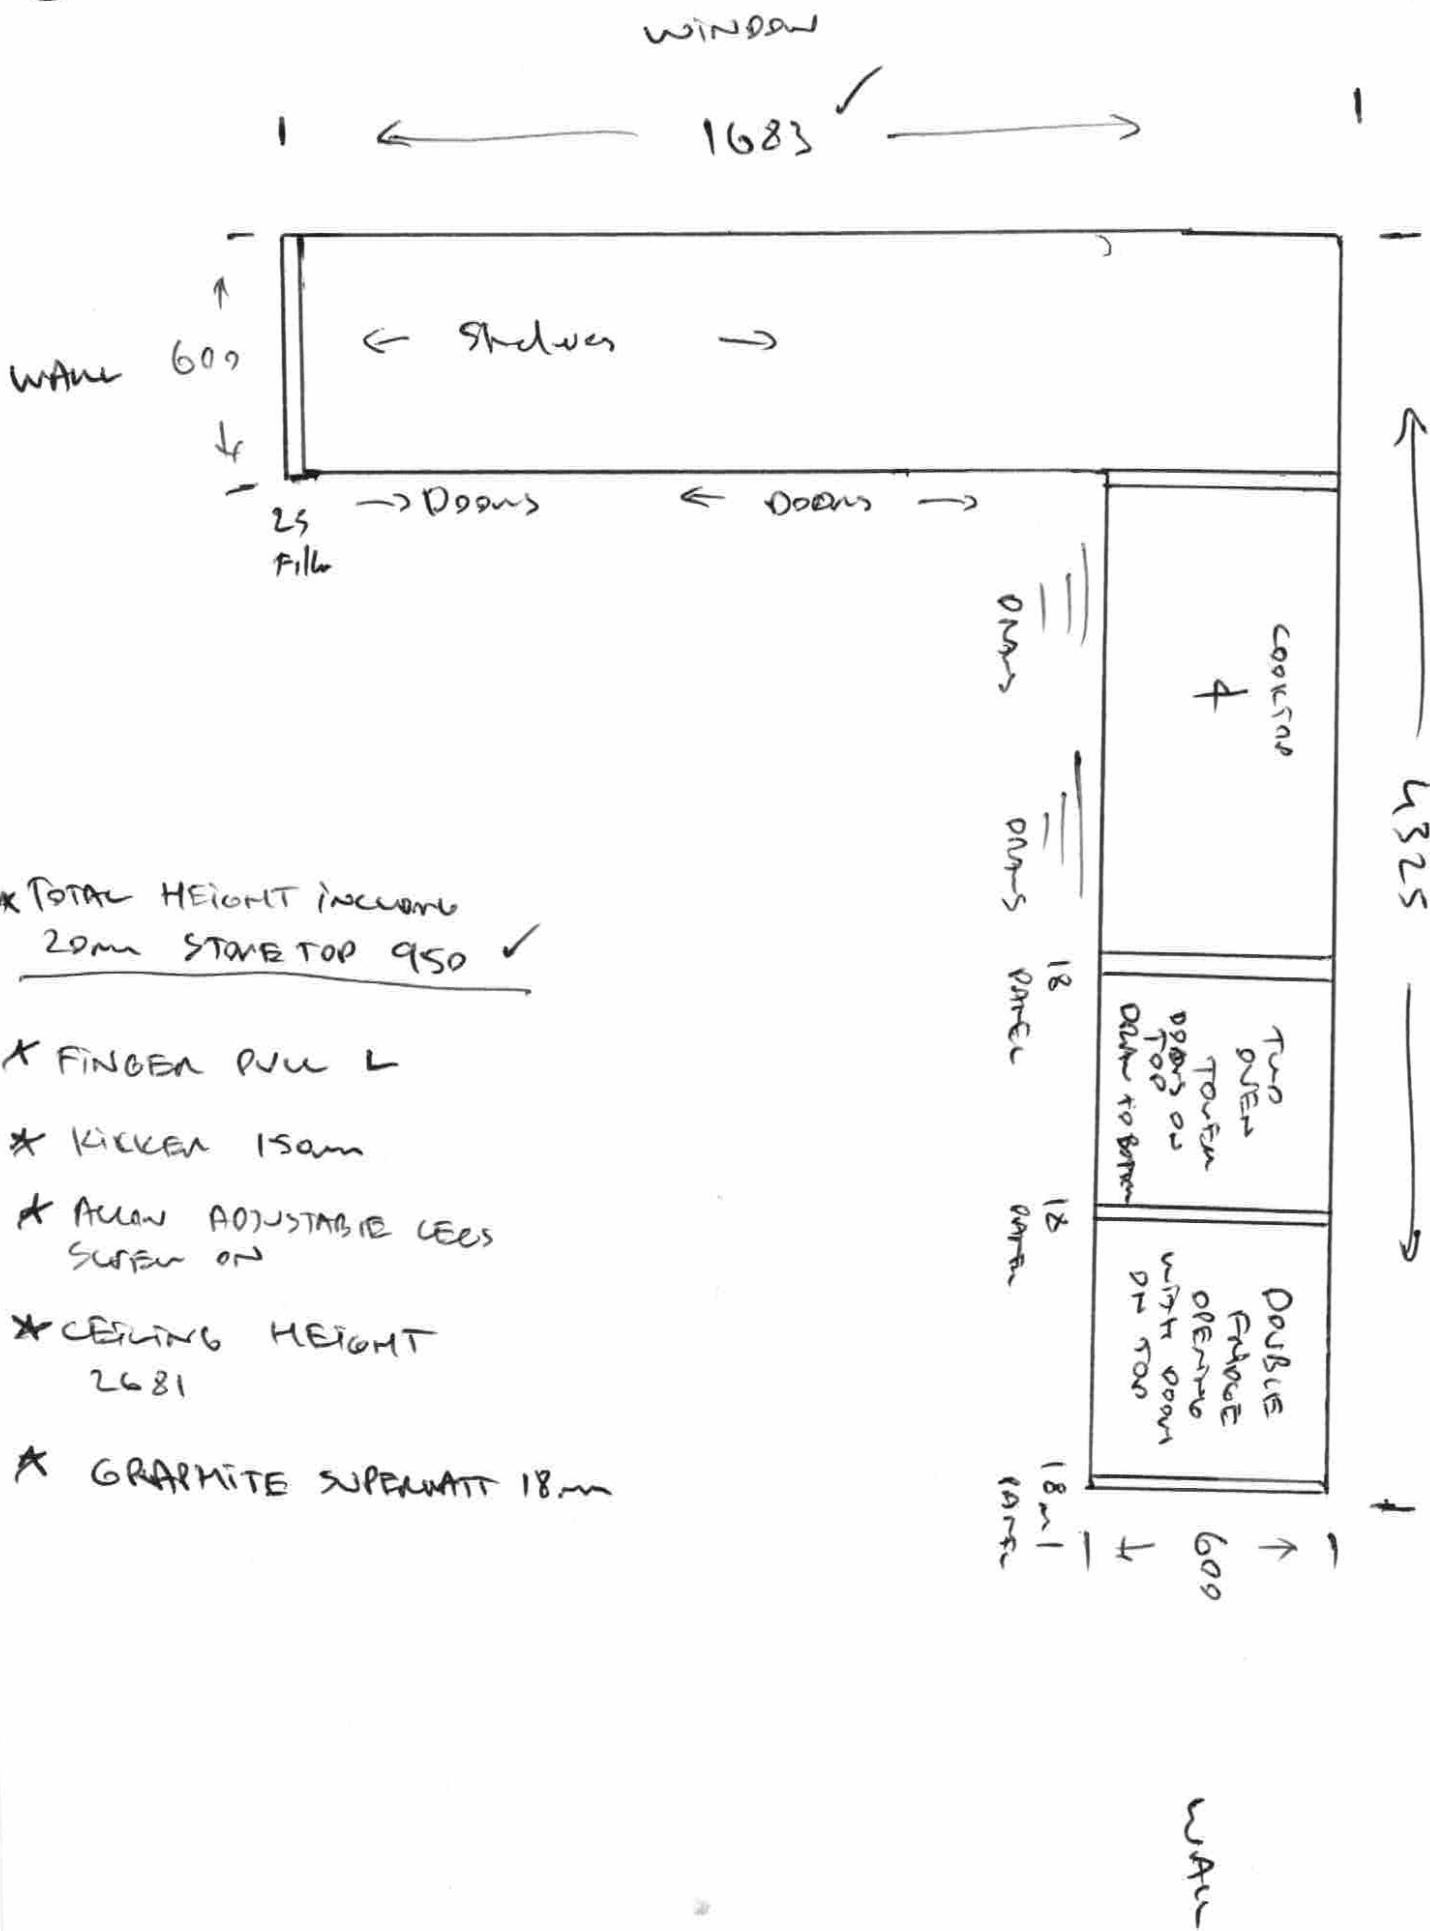 WINDOW
1683
WALL
600
← Shelves →
25
Filler
→ Doors
← Doors →
DRAWS
DRAWS
COOKTOP
4325
18
PANEL
TWO
OVEN
TOWER
DOORS ON
TOP
DRAW TO BOTTOM
18
PANEL
DOUBLE
FRIDGE
OPENING
WITH DOOR
ON TOP
18mm
PANEL
600
WALL
* TOTAL HEIGHT INCLUDING
20mm STONE TOP 950 ✓
* FINGER PULL L
* KICKER 150mm
* ALLOW ADJUSTABLE LEGS
SCREW ON
* CEILING HEIGHT
2681
* GRAPHITE SUPERMATT 18mm